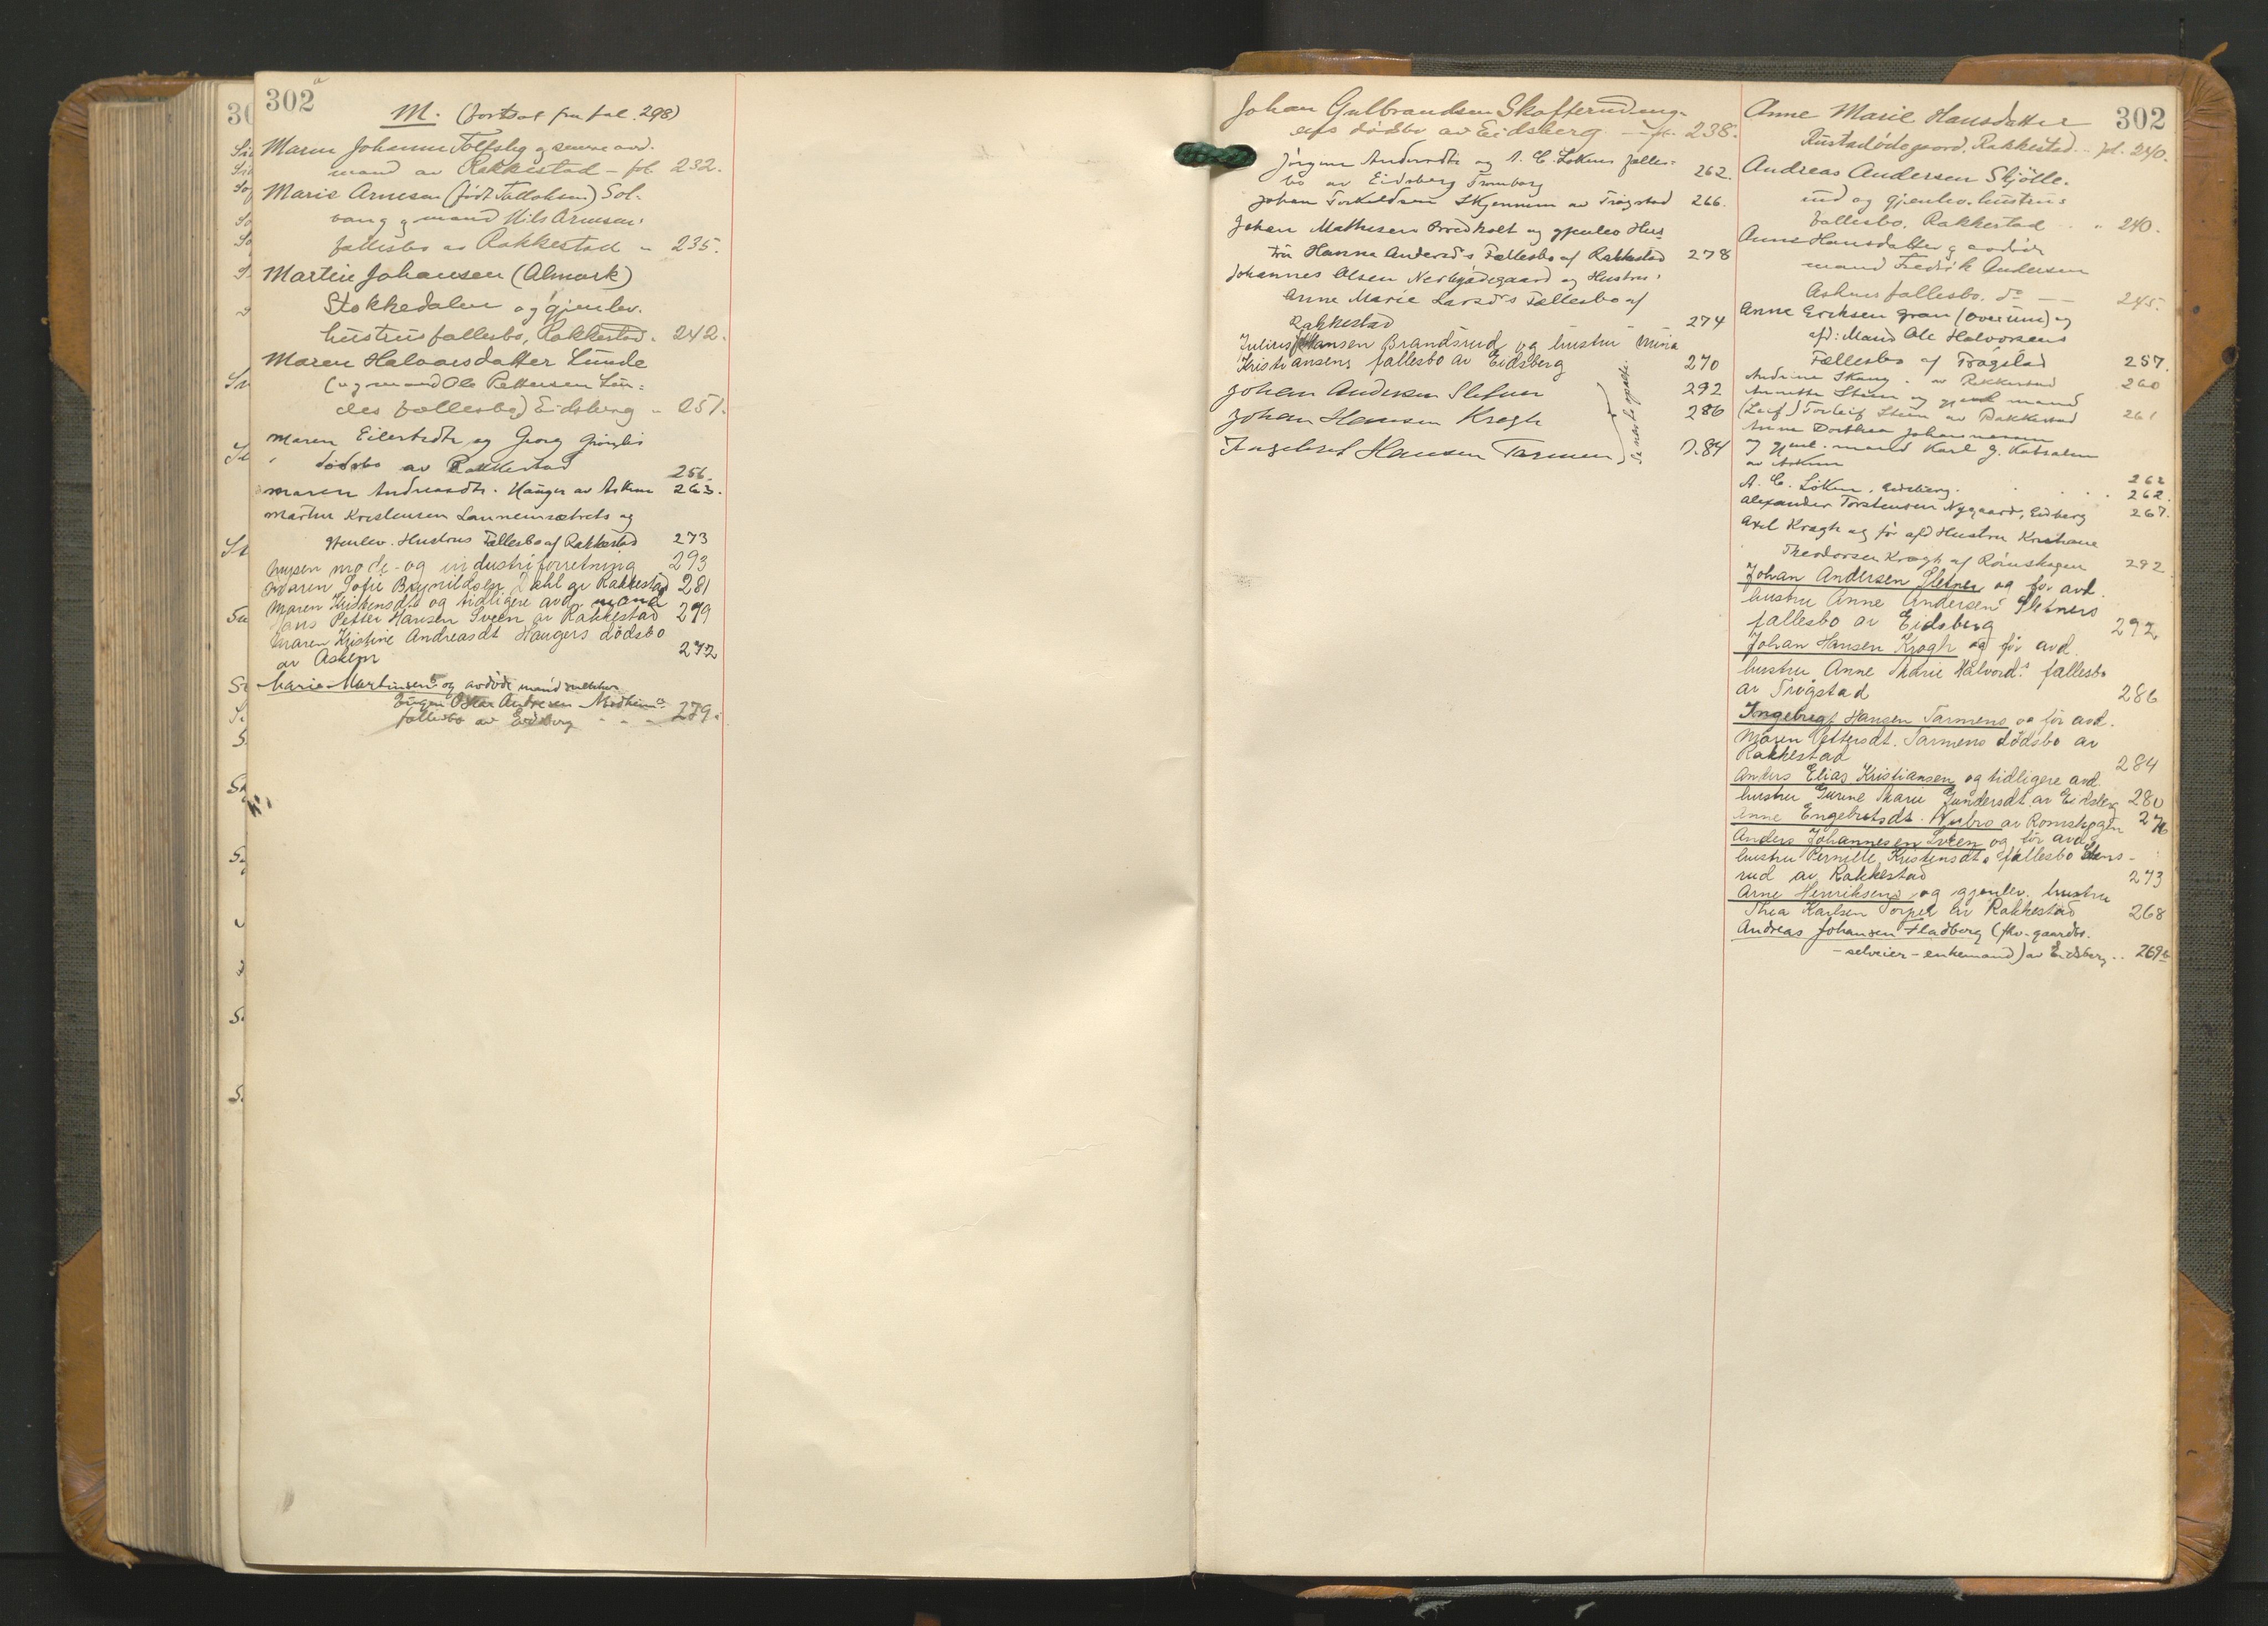 302
M. (fortsat fra fol. 298)
Maren Johanne Tolfsby og senere avd.
mand av Rakkestad – fol. 232.
Marie Arnesen (født Tollefsen) Sol-
vang og mand Nils Arnesens
fællesbo av Rakkestad " 235.
Martin Johansen (Almark)
Stokkedalen og gjenlev.
hustrus fallesbo, Rakkestad. 242.
Maren Halvorsdatter Lunde
(og mand Ole Pettersen Lun-
des fællesbo) Eidsberg " 251.
Maren Eilertsdtr og Georg
dødsbo av Rakkestad 256.
Maren Andreasdtr. Hauger av Askim 263.
Martin Kristensen og
gjenlev. Hustrus Fællesbo af Rakkestad 273
Mysen mode- og industriforretning 293
Maren Sofie Brynildsen Dahl av Rakkestad 281
Maren Kristensdt og tidligere avd. mand
Hans Petter Hansen Sveen av Rakkestad 279
Maren Kristine Andreasdt Haugers dødsbo
av Askim 272
Marie Martinsens og avdøde mand
Eugen Oskar Andresen
fallesbo av Eidsberg " " " 279
Johan Gulbrandsen Skofterudeng-
ens dødsbo av Eidsberg – fol. 238.
Jørgine Andersdtr og A. C. Løkens fælles-
bo av Eidsberg Trømborg 262.
Johan Torkildsen Skjennum av Trøgstad 266.
Johan Mathisen Bredholt og gjenlev Hus-
tru Hanna Andersd's Fællesbo af Rakkestad 278
Johannes Olsen Nesbyødegaard og Hustrus
Anne Marie Larsd's Fællesbo af
Rakkestad 274
Julius Hansen Brandsrud og hustru Mina
Kristiansens fallesbo av Eidsberg 270
Johan Andersen Sletner 292
Johan Hansen Krogh 286
Ingebret Hansen Tarmen 284
302
Anne Marie Hansdatter
Rustadødegaard, Rakkestad – fol. 240.
Andreas Andersen Skjølle-
rud og gjenlev. hustrus
fallesbo, Rakkestad " 240.
Anne Hansdatter og avdøde
mand Fredrik Andersen
Askers fallesbo. do — 245.
Anne Eriksen Gran (Overum) og
afd: Mand Ole Halvorsens
Fællesbo af Trøgstad 257.
Andrine Skaug. av Rakkestad 260
Annette Steen og gjenl mand
(Leif) Torleif Steen av Rakkestad 261
Anne Dorthea Johannesen
og gjenl. mand Karl J.
av Askim 262
A. C. Løken, Eidsberg. 262.
Alexander Torstensen Nygaard, Eidsberg 267.
Axel Kragh og før afd Hustru Kristiane
Theodorsen Kragh af Rømskogen 292
Johan Andersen Sletner og før avd.
hustru Anne Andersen Sletners
fallesbo av Eidsberg 292
Johan Hansen Krogh og før avd.
hustru Anne Marie Halvord's fallesbo
av Trøgstad 286
Ingebregt Hansen Tarmens og før avd.
Maren Pettersdt. Tarmens dødsbo av
Rakkestad 284
Anders Elias Kristiansen og tidligere avd.
hustru Gurine Marie Gundersdt. av Eidsberg 280
Anne Engebretsdt. Nybro av Rømskogen 276
Anders Johannesen Sveen og før avd.
hustru Pernille Kristensdt's fallesbo Stens-
rud av Rakkestad 273
Arne Henriksens og gjenlev. hustru
Thea Karlsen Torper av Rakkestad 268
Andreas Johansen Fladberg (fhv. gaardbr.
– selveier – enkemand) av Eidsberg .. 269